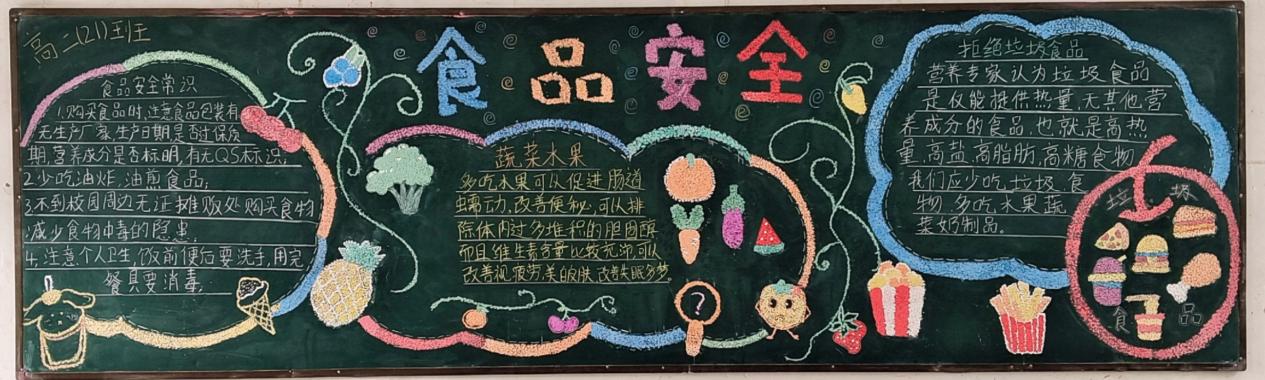 高二(21)班
食品安全
食品安全常识
1.购买食品时,注意食品包装有
无生产厂家,生产日期是否过保质
期,营养成分是否标明,有无QS标识;
2.少吃油炸,油煎食品;
3.不到校园周边无证摊贩处购买食物
减少食物中毒的隐患;
4.注意个人卫生,饭前便后要洗手,用完
餐具要消毒
蔬菜水果
多吃水果可以促进肠道
蠕动,改善便秘。可以排
除体内过多堆积的胆固醇
而且维生素含量比较充沛,可以
改善视疲劳,美皮肤,改善失眠多梦。
?
拒绝垃圾食品
营养专家认为垃圾食品
是仅能提供热量,无其他营
养成分的食品,也就是高热
量,高盐,高脂肪,高糖食物
我们应少吃垃圾食
物,多吃水果蔬
菜奶制品。
垃圾
食品